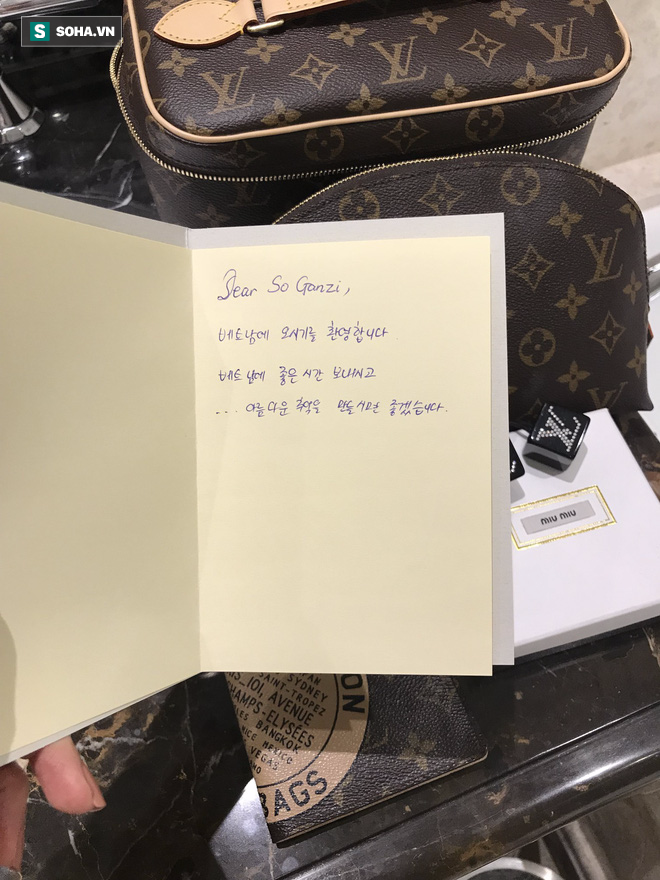 S SOHA.VN
Dear So Ganzi,
베트남에 오시기를 환영합니다
베트남에 좋은 시간 보내시고
... 아름다운 추억을 만들시면 좋겠습니다.
MIU MIU
SYDNEY
SAINT-TROPEZ
101, AVENUE
CHAMPS-ELYSÉES
BANGKOK
MEXICO
VEGAS
BAGS